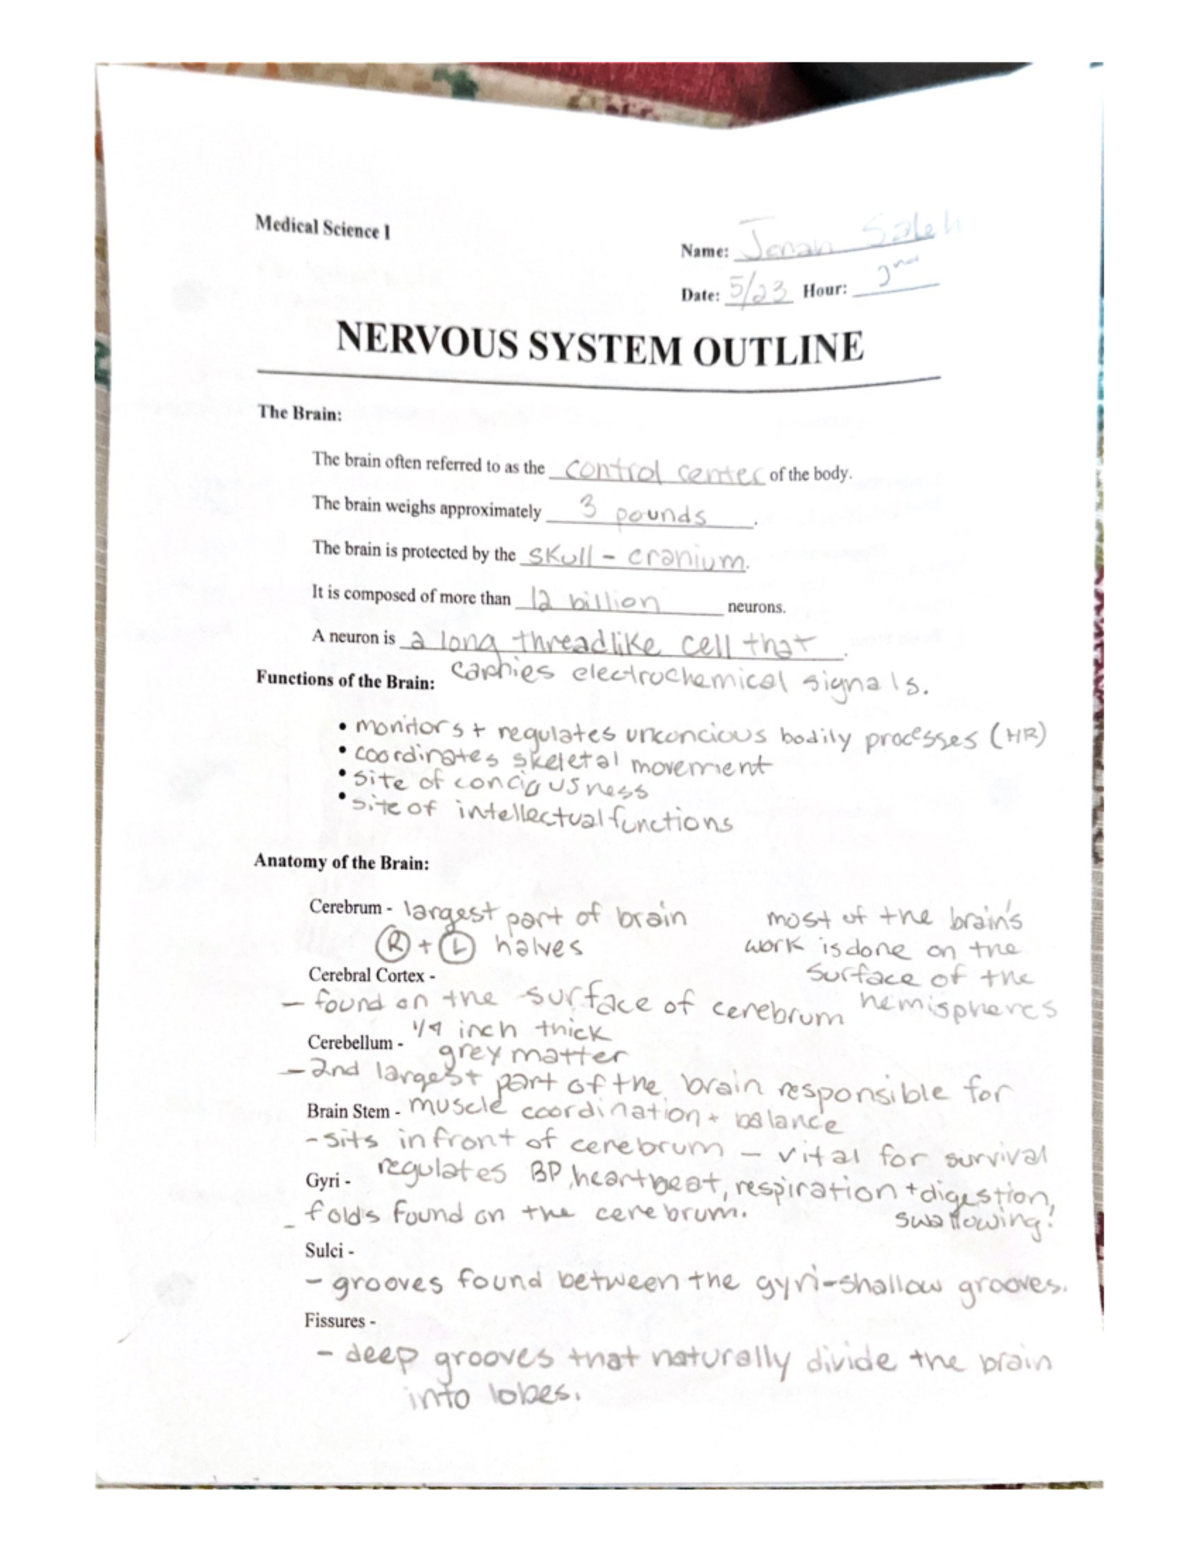 Medical Science I
Name: Jenan Saleh
Date: 5/23 Hour: 2nd
NERVOUS SYSTEM OUTLINE
The Brain:
The brain often referred to as the control center of the body.
The brain weighs approximately 3 pounds.
The brain is protected by the skull - cranium.
It is composed of more than 12 billion neurons.
A neuron is a long threadlike cell that
carries electrochemical signals.
Functions of the Brain:
• monitors + regulates unconcious bodily processes (HR)
• coordinates skeletal movement
• site of conciousness
• site of intellectual functions
Anatomy of the Brain:
Cerebrum - largest part of brain
R + L halves
most of the brain's
work is done on the
surface of the
hemispheres
Cerebral Cortex -
- found on the surface of cerebrum
1/4 inch thick
grey matter
Cerebellum -
- 2nd largest part of the brain responsible for
muscle coordination + balance
Brain Stem -
- sits infront of cerebrum - vital for survival
regulates BP, heartbeat, respiration + digestion,
swallowing!
Gyri -
- folds found on the cerebrum.
Sulci -
- grooves found between the gyri-shallow grooves.
Fissures -
- deep grooves that naturally divide the brain
into lobes.